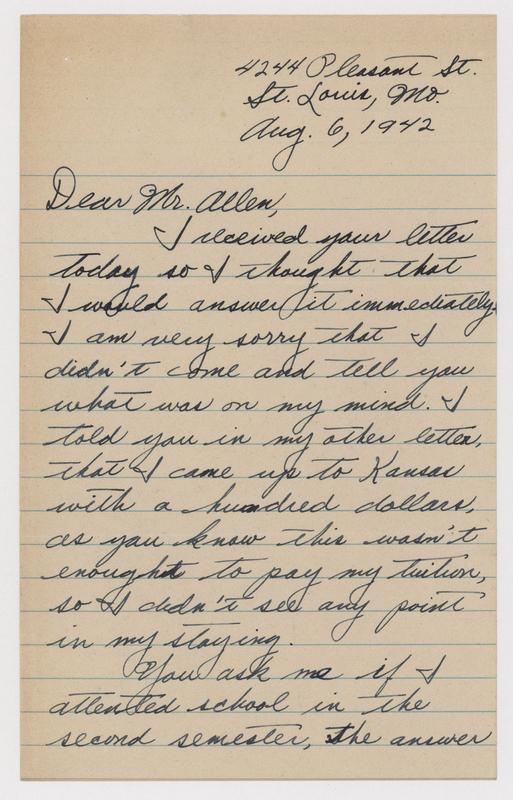 4244 Pleasant St.
St. Louis, Mo.
Aug. 6, 1942
Dear Mr. Allen,
I received your letter
today so I thought that
I would answer it immediately.
I am very sorry that I
didn't come and tell you
what was on my mind. I
told you in my other letter,
that I came up to Kansas
with a hundred dollars,
as you know this wasn't
enought to pay my tuition,
so I didn't see any point
in my staying.
You ask me if I
attented school in the
second semester, the answer